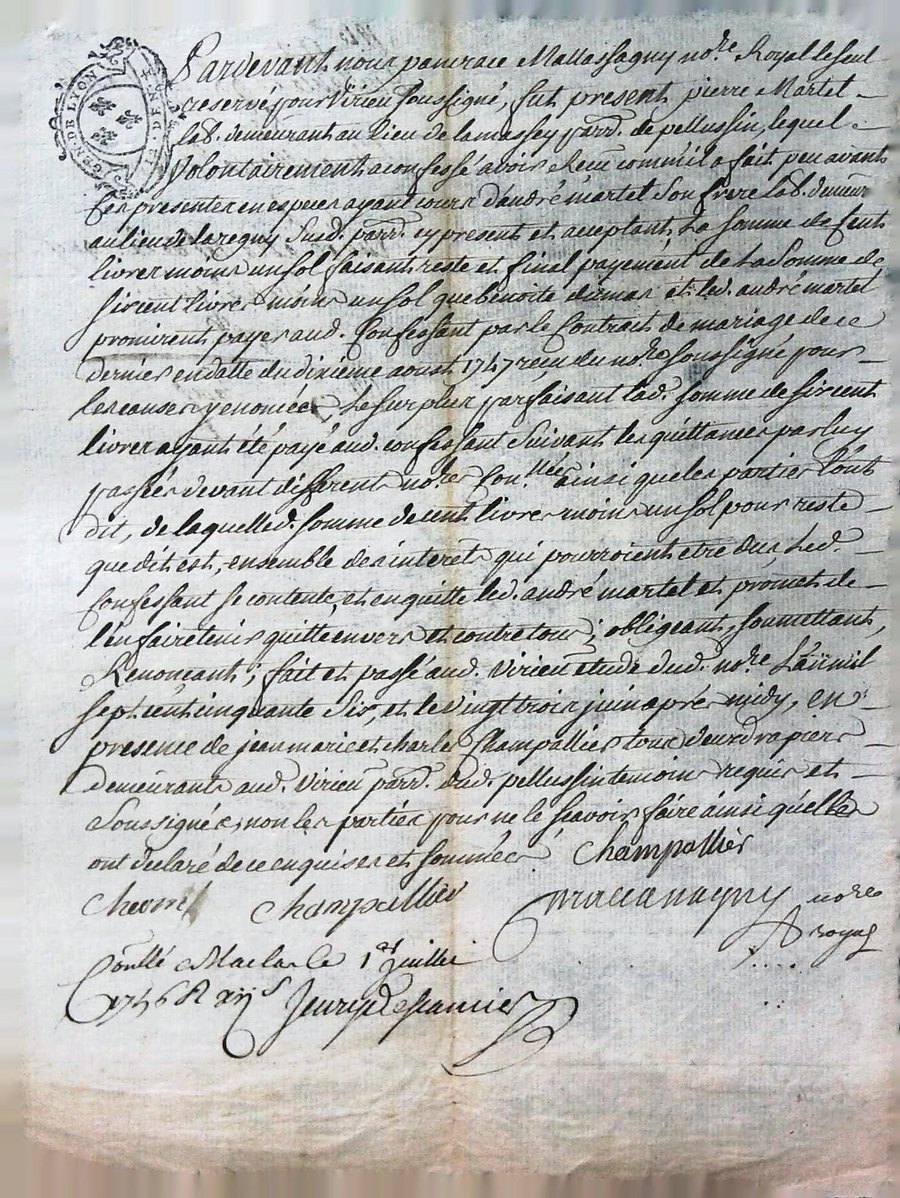 GEN. DE LYON
Pardevant nous pancrace Mattassagny no.re Royal le seul
reservé pour Virieu soussigné, fut present pierre Martel
lab. demeurant au lieu de lamassey parr. de pellussin, lequel
Volontairement a confessé avoir Receu comm'il a fait peu avant
Ces presentes en especes ayant cours d'andré martel son frere lab. demeur.
au lieu de laregny susd. parr. cy present et acceptant La somme de Cent
livres moins un sol faisant reste et final payement de La somme de
sixcent livres moins un sol que benoite dumas et led. andré martel
promirent payer aud. Confessant par le Contrait de mariage de ce
dernier en datte du dixieme aoust 1747 receu du no.re soussigné pour
les causes y enoncées, Le surplus parfaisant lad. somme de sixcent
livres ayant été payé aud. confessant suivant les quittances par luy
passées devant differents no.res Con.llées ainsi que les parties l'ont
dit, de laquelle d. somme de cent livres moins un sol pour reste
que dit est, ensemble des interets qui pourroient etre dus Led.
Confessant se contente, et en quitte led. andré martel et promet de
l'en faire tenir quitte envers et contre tous; obligeant, soumettant,
Renonçant; fait et passé aud. Virieu etude dud. no.re L'an mil
sept cent cinquante six, et le vingt trois juin après midy, en
presence de jean marie et charles Champallier tous deux drapiers
demeurants aud. Virieu parr. dud. pellussin temoins requis et
soussignés, non les parties pour ne le sçavoir faire ainsi qu'elles
ont declaré de ce enquises et sommées Champallier
Champallier no.re
royal
Conllé a Maclas le 1er Juillet
1756 R xiij s